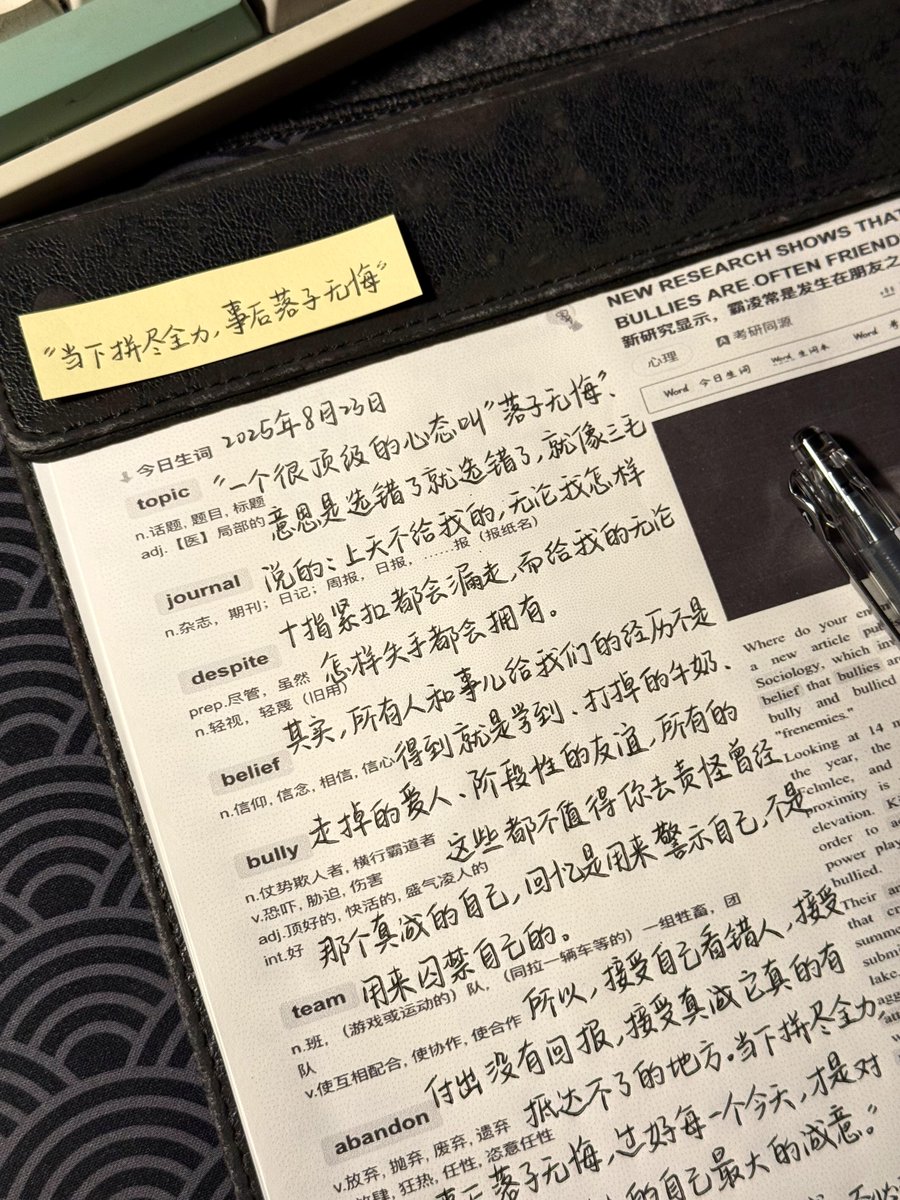 "当下拼尽全力,事后落子无悔"
NEW RESEARCH SHOWS THAT
BULLIES ARE OFTEN FRIEND
新研究显示，霸凌常是发生在朋友之
心理
考研同源
Word 今日生词
Word 生词本
Word 考
2025年8月23日
今日生词
"一个很顶级的心态叫"落子无悔"、
topic
n.话题, 题目, 标题
adj.【医】局部的
意思是选错了就选错了,就像三毛
journal
说的:上天不给我的,无论我怎样
n.杂志，期刊；日记；周报，日报，……报（报纸名）
十指紧扣都会漏走,而给我的无论
despite
prep.尽管，虽然
n.轻视，轻蔑（旧用）
怎样失手都会拥有。
其实,所有人和事儿给我们的经历不是
belief
n.信仰, 信念, 相信, 信心
得到就是学到、打掉的牛奶、
走掉的爱人、阶段性的友谊,所有的
bully
n.仗势欺人者, 横行霸道者
v.恐吓, 胁迫, 伤害
adj.顶好的, 快活的, 盛气凌人的
int.好
这些都不值得你去责怪曾经
那个真诚的自己,回忆是用来警示自己,不是
team
用来囚禁自己的。
n.班，（游戏或运动的）队，（同拉一辆车等的）一组牲畜，团
队
v.使互相配合, 使协作, 使合作
所以,接受自己看错人,接受
付出没有回报,接受真诚它真的有
abandon
抵达不了的地方。当下拼尽全力,
v.放弃, 抛弃, 废弃, 遗弃
狂热, 任性, 恣意任性
落子无悔,过好每一个今天,才是对
的自己最大的诚意。"
Where do your
a new article
Sociology, which
belief that bullies
bully and bullied
"frenemies."
Looking at 14
the year, the
Felmlee, and
proximity is
elevation.
order to
power play
bullied.
Their
that
lake.